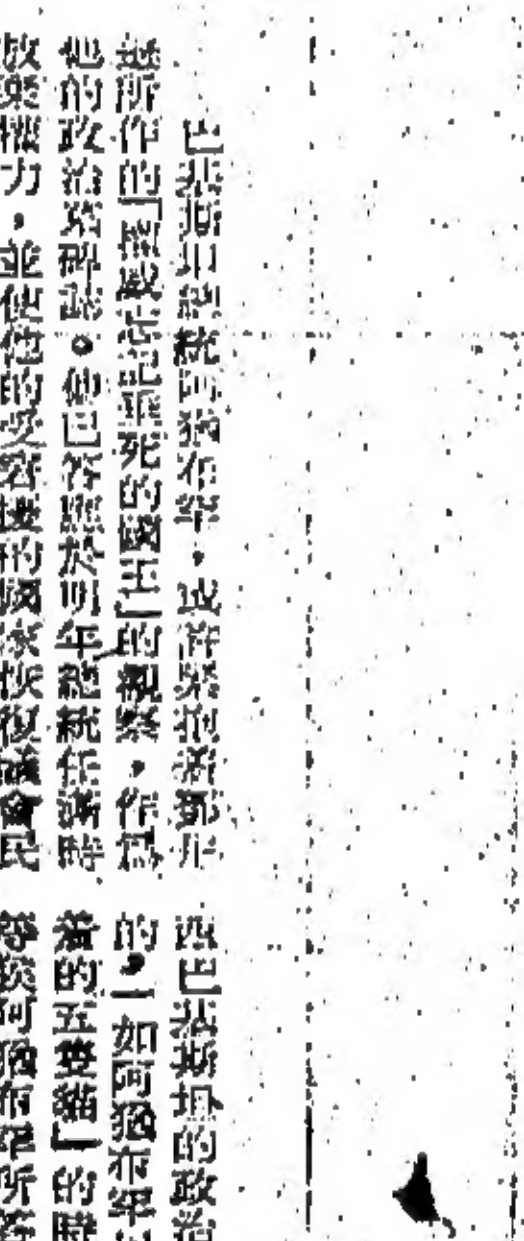 巴基斯坦總統阿猶布罕，或許要把
所作的「人忘記垂死的國王」的觀察，作爲
他的政治墓碑誌。他已答應於明年總統任滿時
放棄權力，並使他的受的國家恢復議會民
西巴基斯坦的政治
的，一如阿猶布罕
着的五隻貓」的時
等候阿猶布罕所答